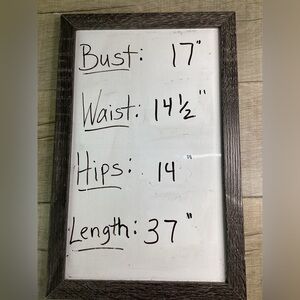 Bust: 17"
Waist: 14½"
Hips: 14"
Length: 37"